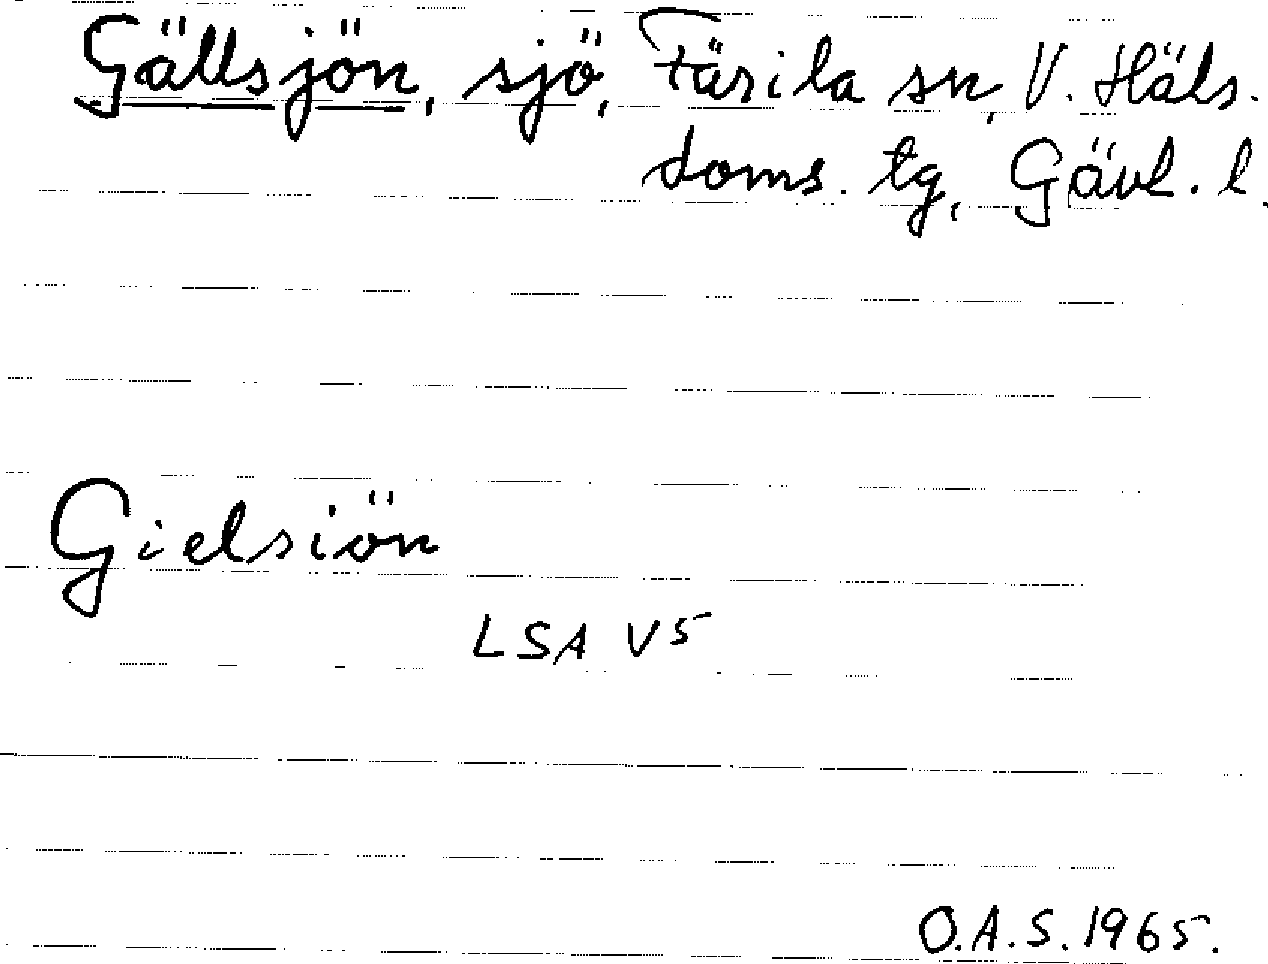 Gällsjön, sjö, Färila sn, V. Häls.
doms. tg, Gävl. l.
Gielsiön
LSA V5
O.A.S. 1965.